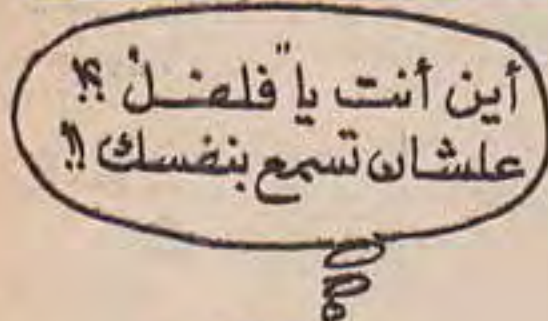 أين أنت يا "فلفل" ؟!
علشان تسمع بنفسك !!